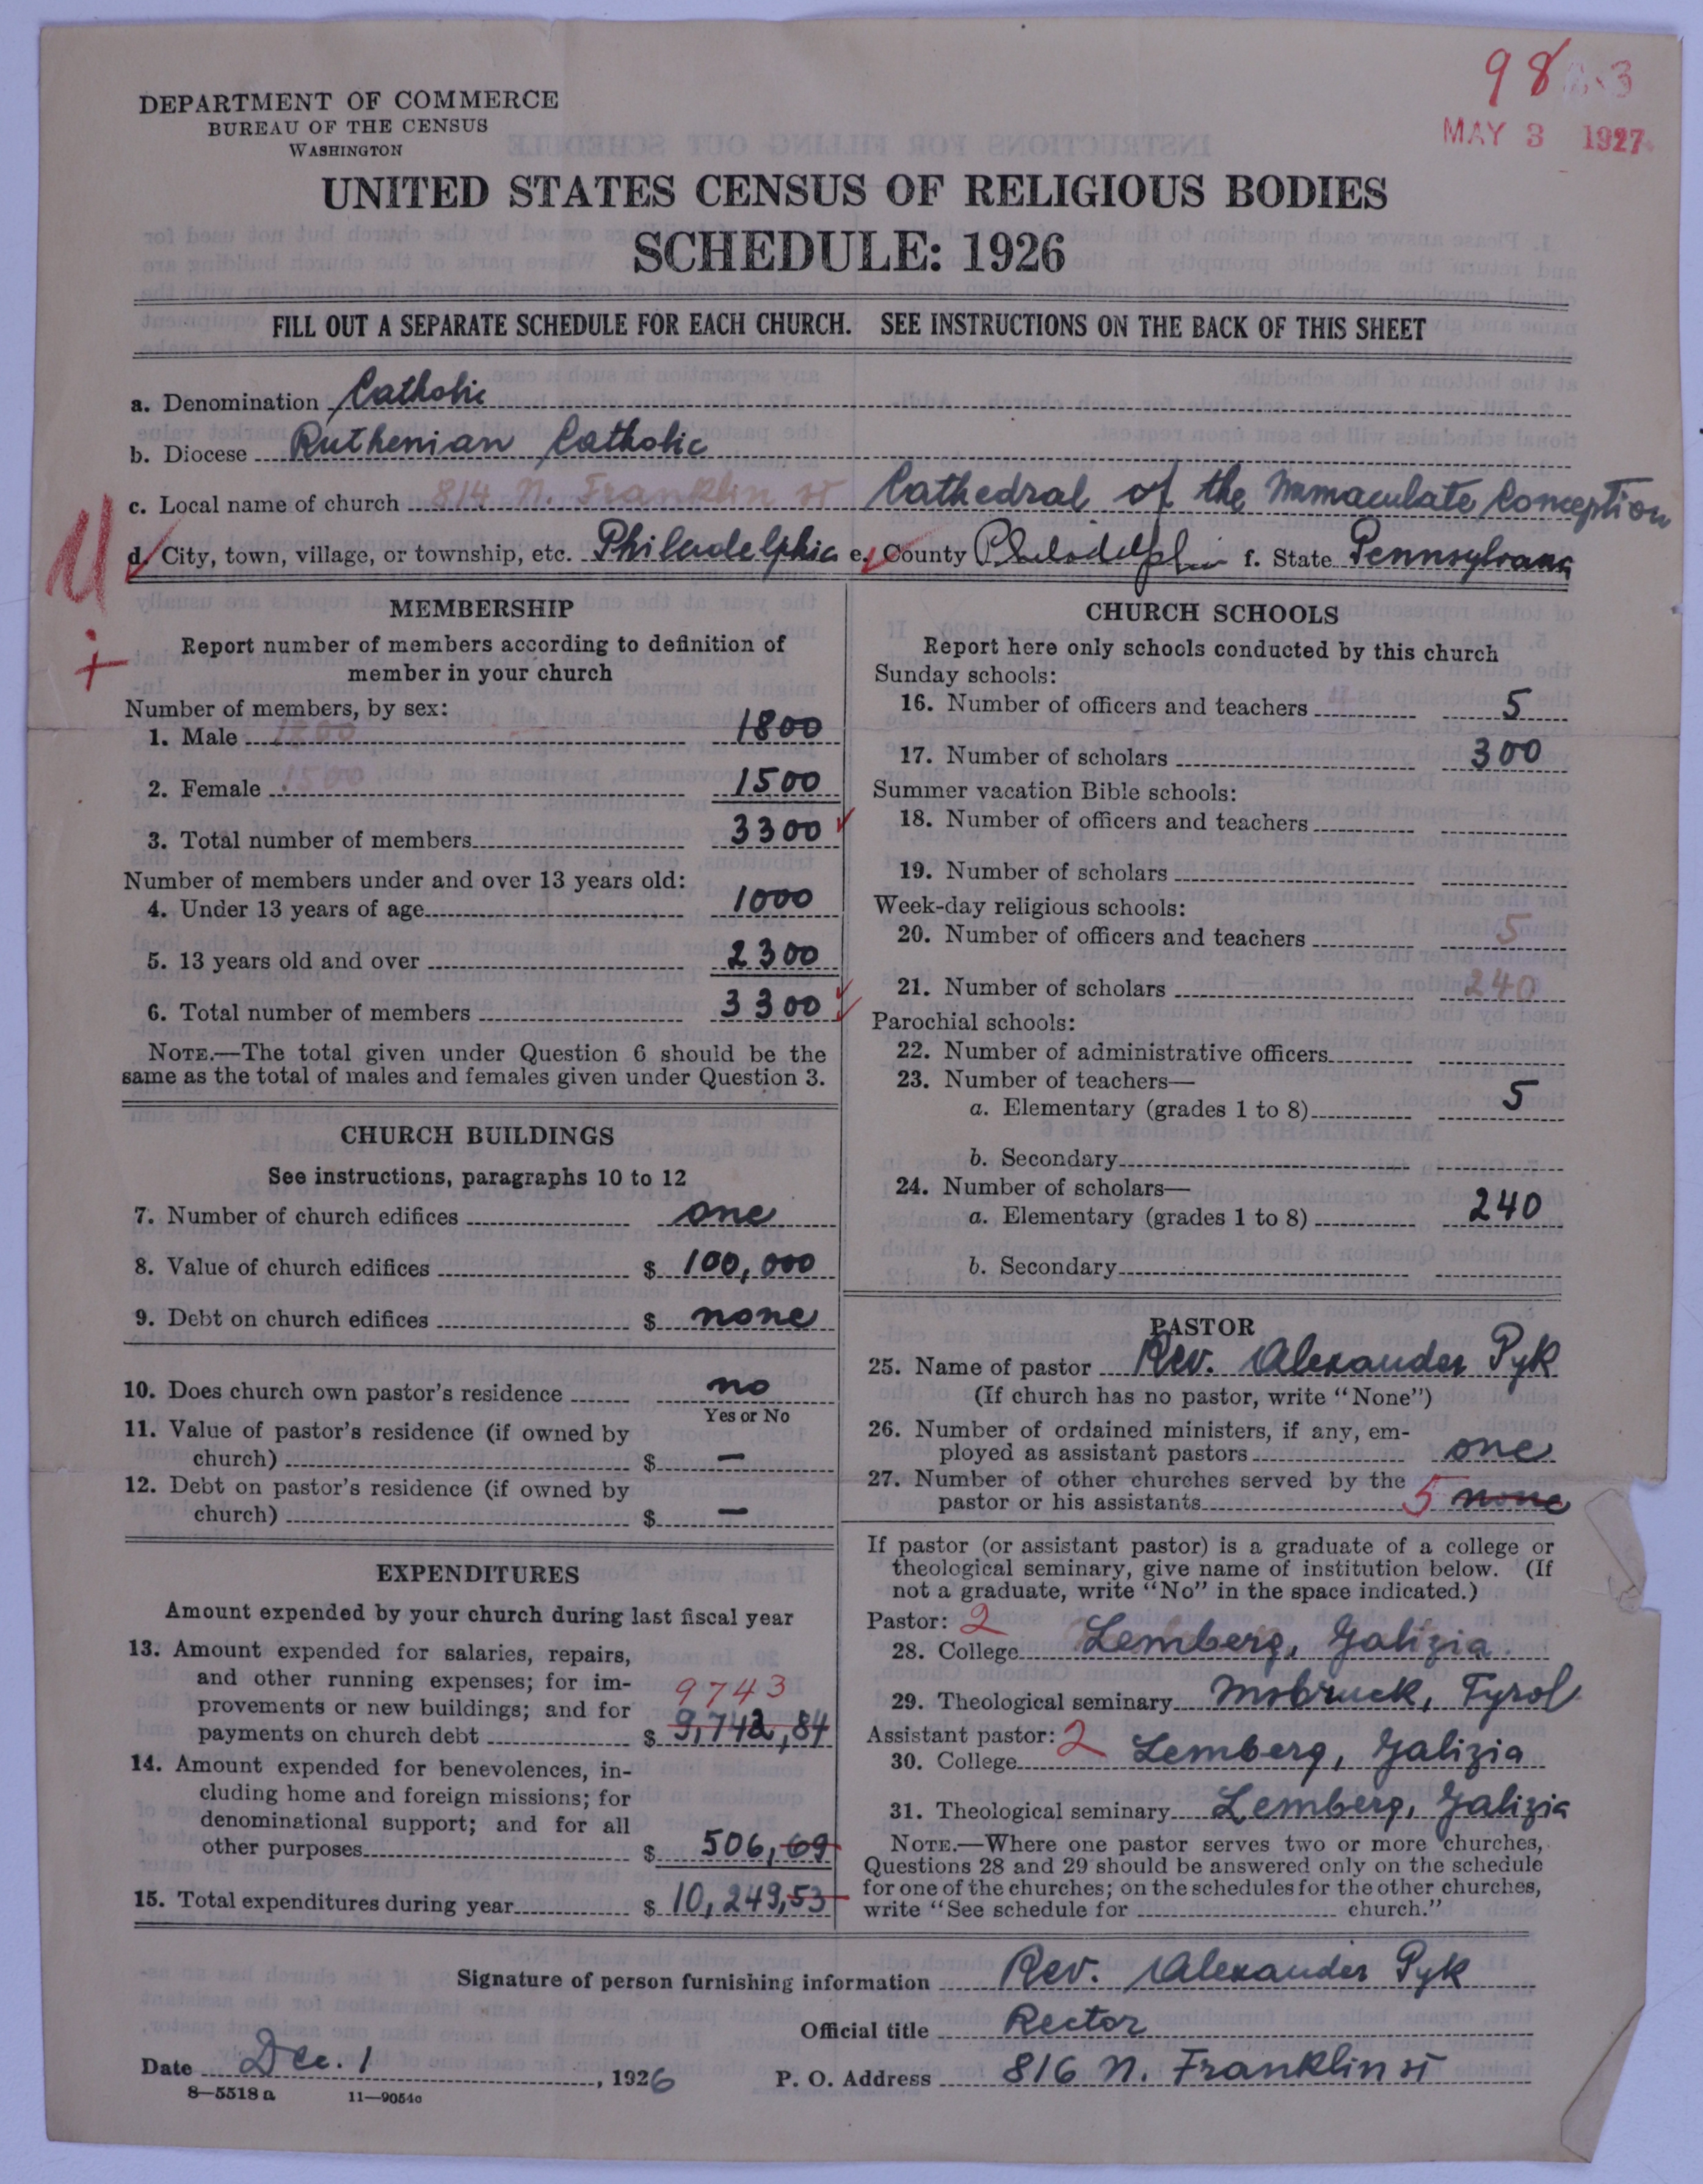 98
MAY 3 1927
DEPARTMENT OF COMMERCE
BUREAU OF THE CENSUS
WASHINGTON
UNITED STATES CENSUS OF RELIGIOUS BODIES
SCHEDULE: 1926
FILL OUT A SEPARATE SCHEDULE FOR EACH CHURCH. SEE INSTRUCTIONS ON THE BACK OF THIS SHEET
a. Denomination Catholic
b. Diocese Ruthenian Catholic
c. Local name of church 814 N. Franklin St Cathedral of the Immaculate Conception
d. City, town, village, or township, etc. Philadelphia e. County Philadelphia f. State Pennsylvana
MEMBERSHIP
Report number of members according to definition of
member in your church
Number of members, by sex:
1. Male 1800 1800
2. Female 1500 1500
3. Total number of members 3300
Number of members under and over 13 years old:
4. Under 13 years of age 1000
5. 13 years old and over 2300
6. Total number of members 3300
NOTE.—The total given under Question 6 should be the
same as the total of males and females given under Question 3.
CHURCH BUILDINGS
See instructions, paragraphs 10 to 12
7. Number of church edifices one
8. Value of church edifices $ 100,000
9. Debt on church edifices $ none
10. Does church own pastor's residence no
Yes or No
11. Value of pastor's residence (if owned by
church) $ —
12. Debt on pastor's residence (if owned by
church) $ —
EXPENDITURES
Amount expended by your church during last fiscal year
13. Amount expended for salaries, repairs,
and other running expenses; for im-
provements or new buildings; and for 9743
payments on church debt $ 9,742,84
14. Amount expended for benevolences, in-
cluding home and foreign missions; for
denominational support; and for all
other purposes $ 506,69
15. Total expenditures during year $ 10,249,53
CHURCH SCHOOLS
Report here only schools conducted by this church
Sunday schools:
16. Number of officers and teachers 5
17. Number of scholars 300
Summer vacation Bible schools:
18. Number of officers and teachers
19. Number of scholars
Week-day religious schools:
20. Number of officers and teachers 5
21. Number of scholars 240
Parochial schools:
22. Number of administrative officers
23. Number of teachers—
a. Elementary (grades 1 to 8) 5
b. Secondary
24. Number of scholars—
a. Elementary (grades 1 to 8) 240
b. Secondary
PASTOR
25. Name of pastor Rev. Alexander Pyk
(If church has no pastor, write "None")
26. Number of ordained ministers, if any, em-
ployed as assistant pastors one
27. Number of other churches served by the
pastor or his assistants 5 none
If pastor (or assistant pastor) is a graduate of a college or
theological seminary, give name of institution below. (If
not a graduate, write "No" in the space indicated.)
Pastor: 2
28. College Lemberg, Galizia
29. Theological seminary Insbruck, Tyrol
Assistant pastor: 2
30. College Lemberg, Galizia
31. Theological seminary Lemberg, Galizia
NOTE.—Where one pastor serves two or more churches,
Questions 28 and 29 should be answered only on the schedule
for one of the churches; on the schedules for the other churches,
write "See schedule for church."
Signature of person furnishing information Rev. Alexander Pyk
Official title Rector
Date Dec. 1, 1926 P. O. Address 816 N. Franklin St
8—5518a 11—9054c